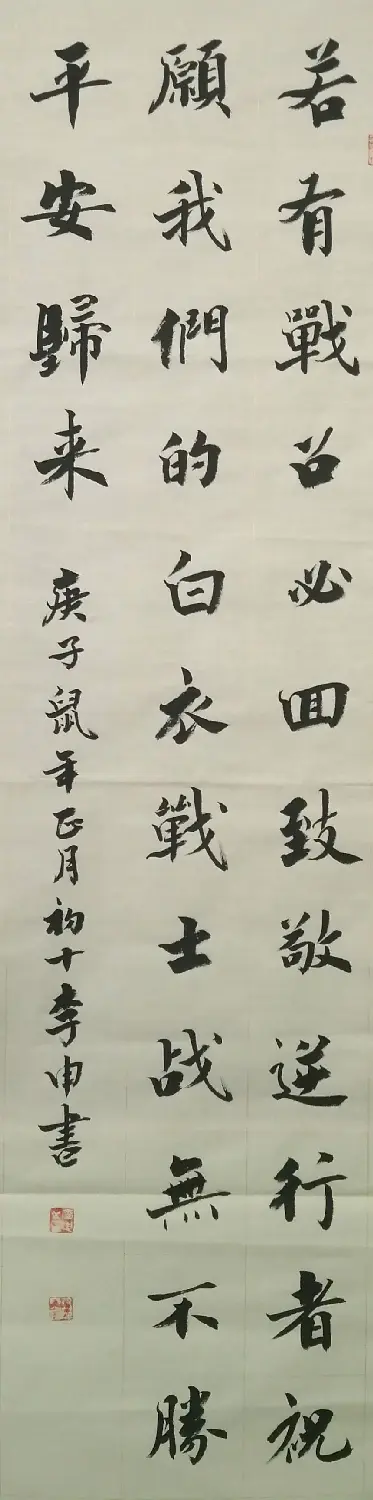 若有戰召必回致敬逆行者祝
願我們的白衣戰士战無不勝
平安歸来
庚子鼠年正月初十李申書